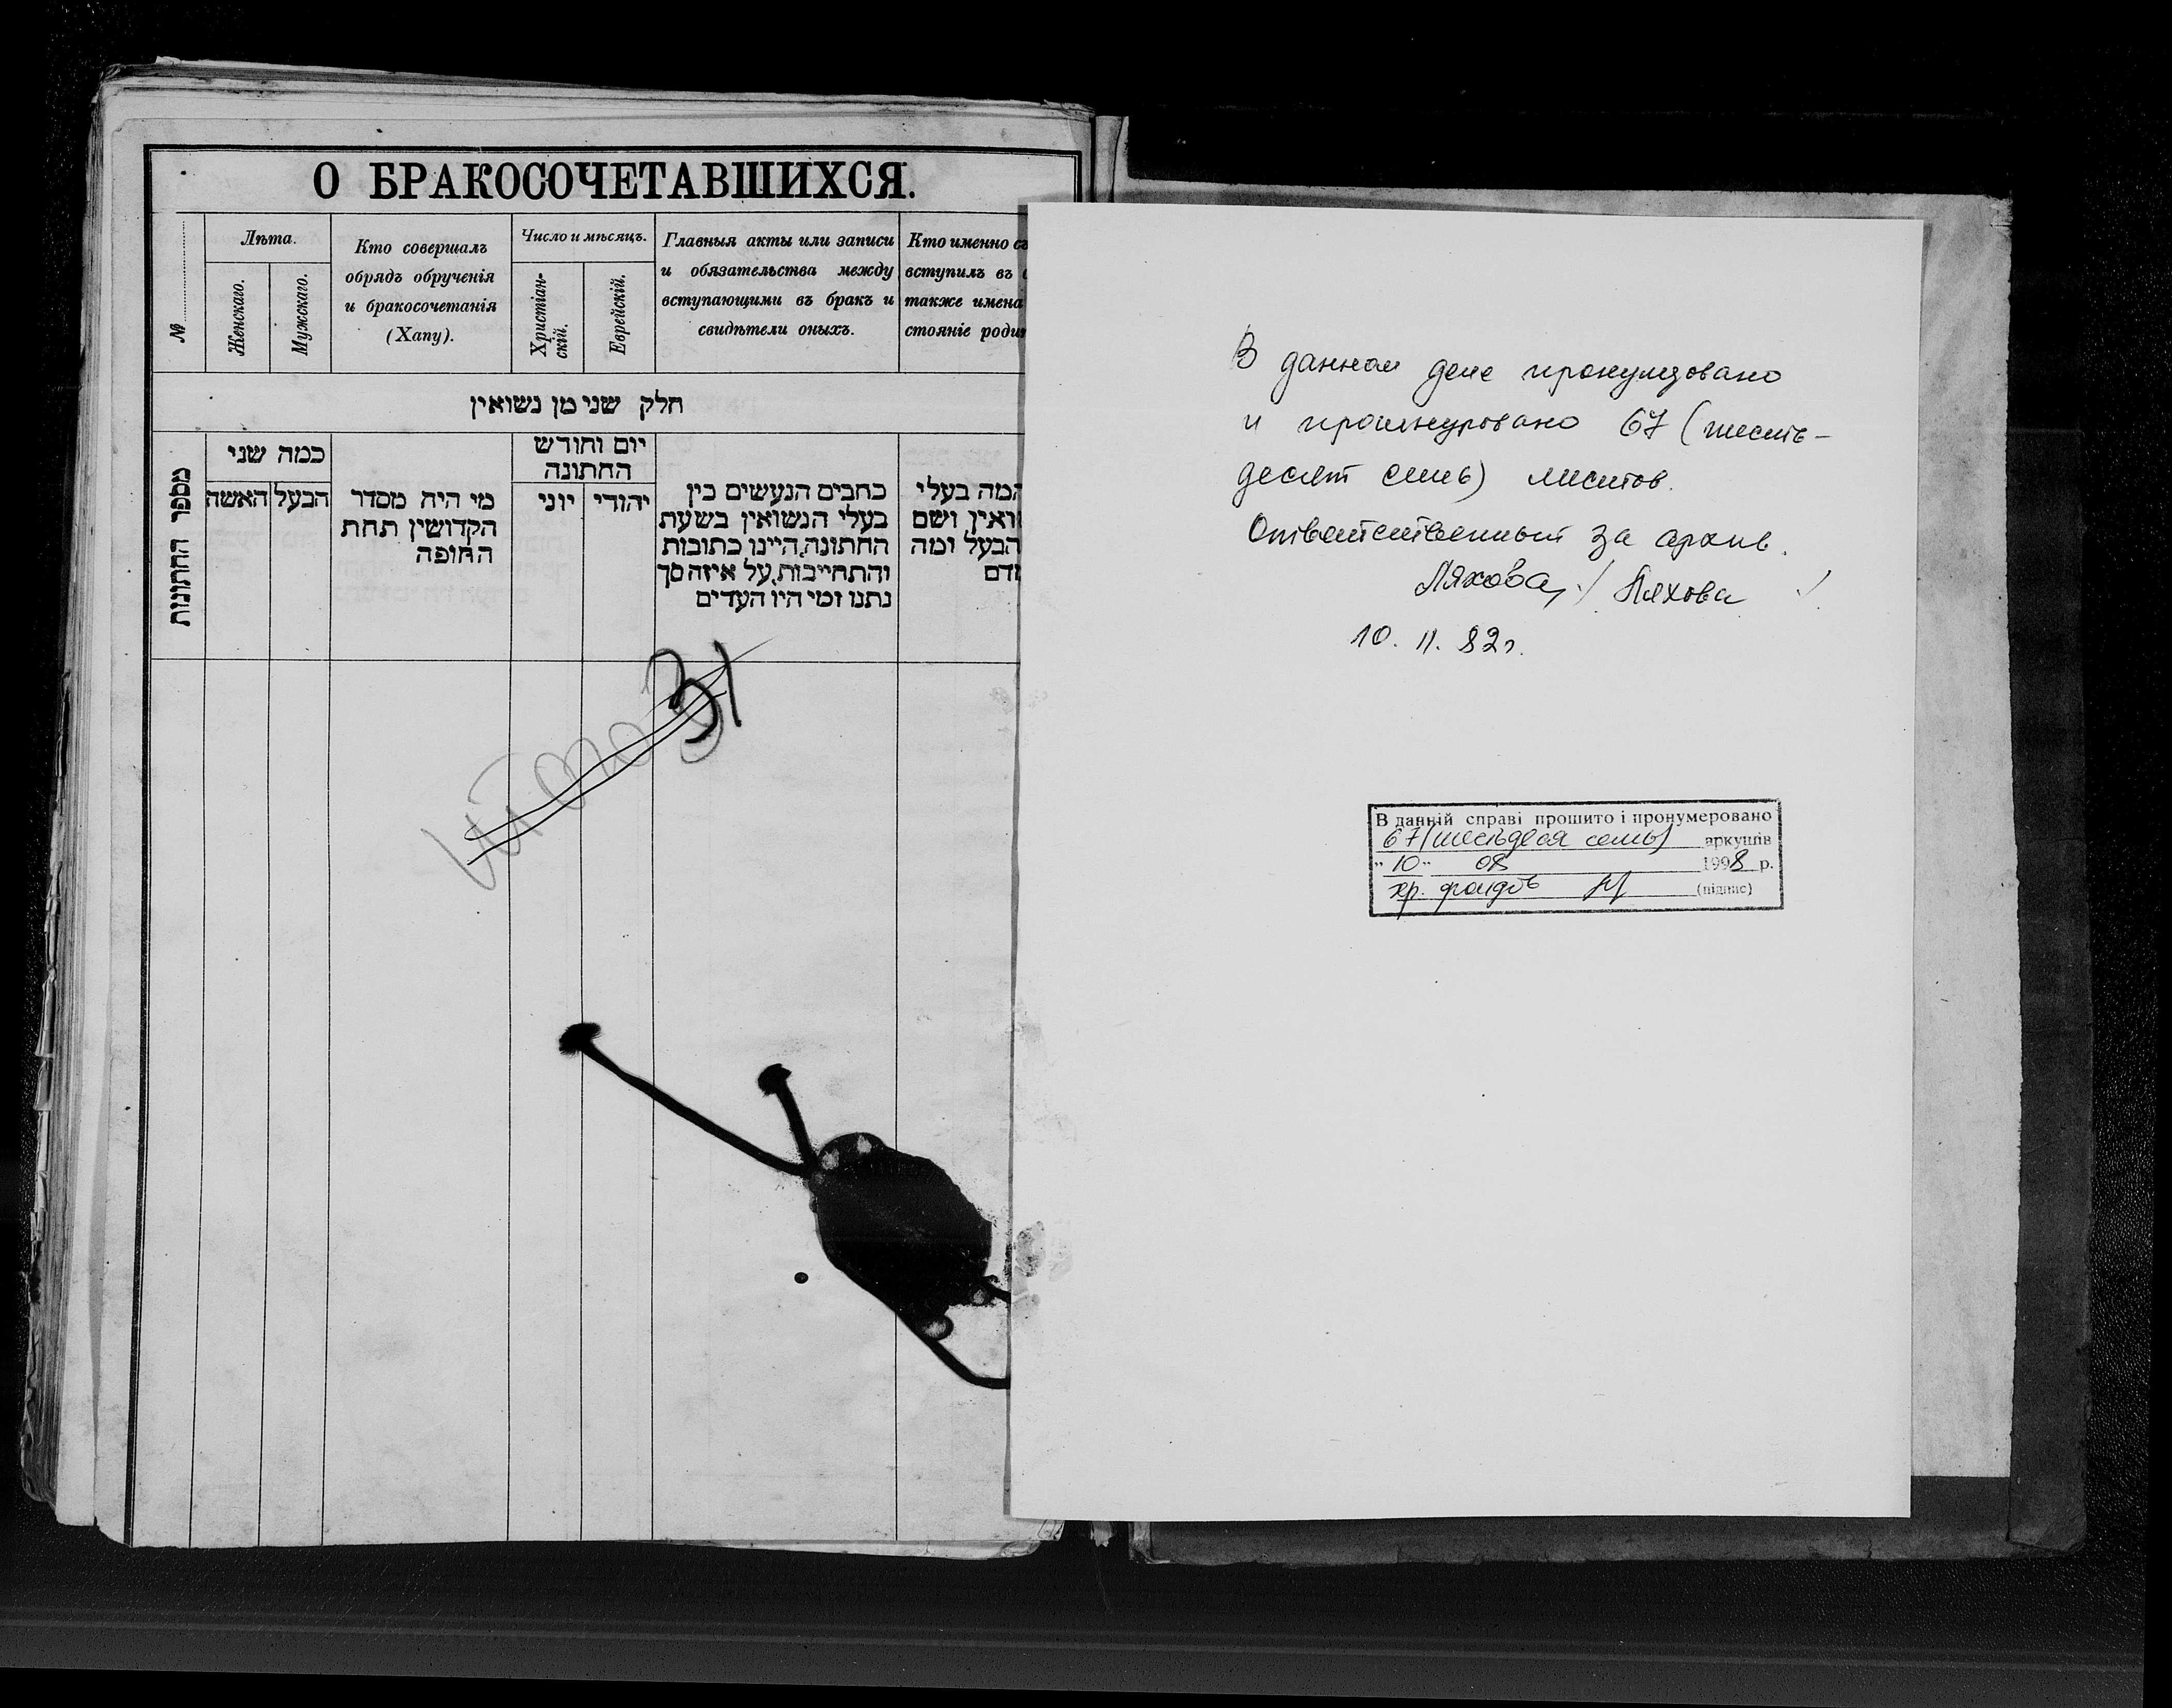 О БРАКОСОЧЕТАВШИХСЯ.
№
Лѣта.
Женскаго.
Мужскаго.
Кто совершалъ
обрядъ обрученія
и бракосочетанія
(Хапу).
Число и мѣсяцъ.
Христіан-
скій.
Еврейскій.
Главныя акты или записи
и обязательства между
вступающими въ бракъ и
свидѣтели оныхъ.
Кто именно съ
вступилъ въ
также имена
стояніе
חלק שני מן נשואין
מספר החתונות
כמה שני
האשה
הבעל
מי היה מסדר
הקדושין תחת
החופה
יום וחודש
החתונה
יוני
יהודי
כתבים הנעשים בין
בעלי הנשואין בשעת
החתונה, היינו כתובות
והתחייבות, על איזה סך
נתנו ומי היו העדים
בעלי
ושם
הבעל ומה
Итого 31
В данном деле пронумеровано
и прошнуровано 67 (шесть-
десят семь) листов.
Ответственный за архив.
Ляхова / Ляхова /
10. 11. 82г.
В данній справі прошито і пронумеровано
67 (шесьдеся семь) аркушів
"10" 08 1998 р.
хр. фондов (підпис)